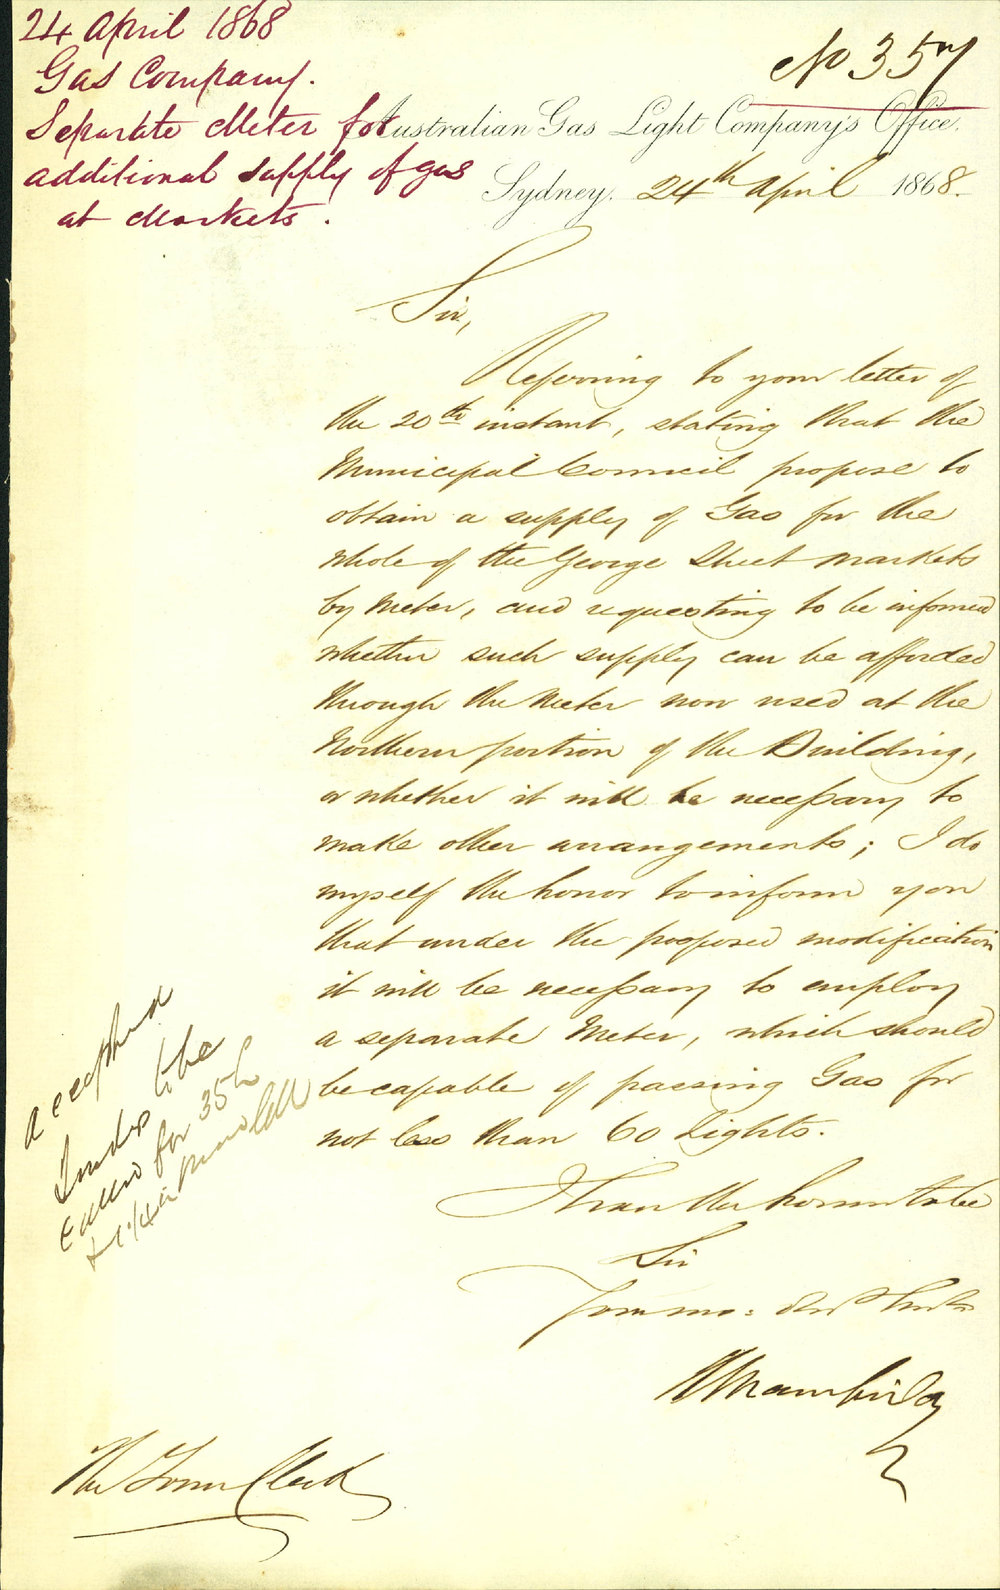 24 April 1868
Gas Company.
Separate Meter for
additional supply of gas
at Markets.
No 357
Australian Gas Light Company's Office.
Sydney. 24th April 1868.
Sir,
Referring to your letter of
the 20th instant, stating that the
Municipal Council propose to
obtain a supply of Gas for the
whole of the George Street Markets
by Meter, and requesting to be informed
whether such supply can be afforded
through the Meter now used at the
Northern portion of the Building,
or whether it will be necessary to
make other arrangements; I do
myself the honor to inform you
that under the proposed modification
it will be necessary to employ
a separate Meter, which should
be capable of passing Gas for
not less than 60 Lights.
I have the honor to be
Sir
Your mo: Obt Servt
The Town Clerk
Tender to be
for 35